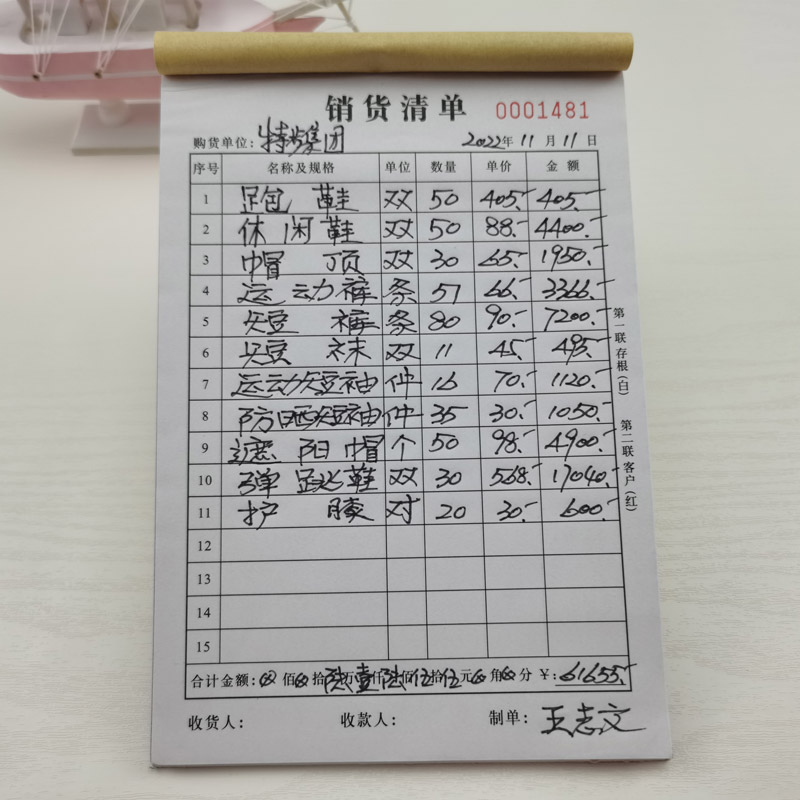 销货清单 0001481
购货单位：特步集团 2022年11月11日
序号 名称及规格 单位 数量 单价 金额
1 足包 鞋 双 50 405.- 405.-
2 休闲鞋 双 50 88.- 4400.-
3 帽 顶 双 30 65.- 1950.-
4 运动裤 条 51 66.- 3366.-
5 短裤 条 80 90.- 7200.-
6 短袜 双 11 45.- 495.-
7 运动短袖 件 16 70.- 1120.-
8 防晒短袖 件 35 30.- 1050.-
9 遮阳帽 个 50 98.- 4900.-
10 弹跳鞋 双 30 568.- 17040.-
11 护膝 对 20 30.- 600.-
12
13
14
15
合计金额：⊗佰⊗拾陆万壹仟陆佰伍拾伍元⊗角⊗分 ￥：61655.-
收货人： 收款人： 制单：王志文
第一联存根（白）
第二联客户（红）